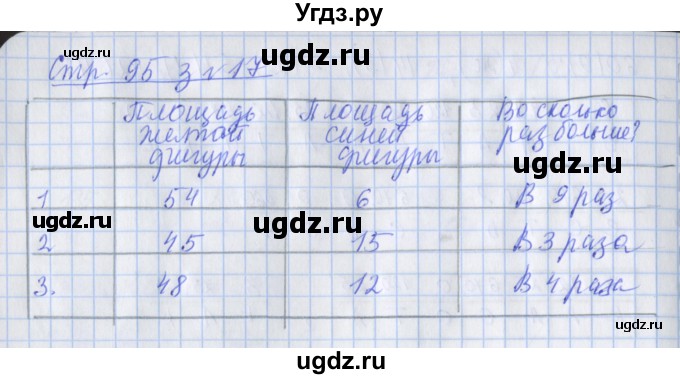 Угдз.ру
Стр. 95 з №17
Площадь желтой фигуры Площадь синей фигуры Во сколько раз больше?
1 54 6 В 9 раз
2 45 15 В 3 раза
3. 48 12 В 4 раза
ugdz.ru
ugdz.ru
ugdz.ru
ugdz.ru
ugdz.ru
ugdz.ru
ugdz.ru
ugdz.ru
ugdz.ru
ugdz.ru